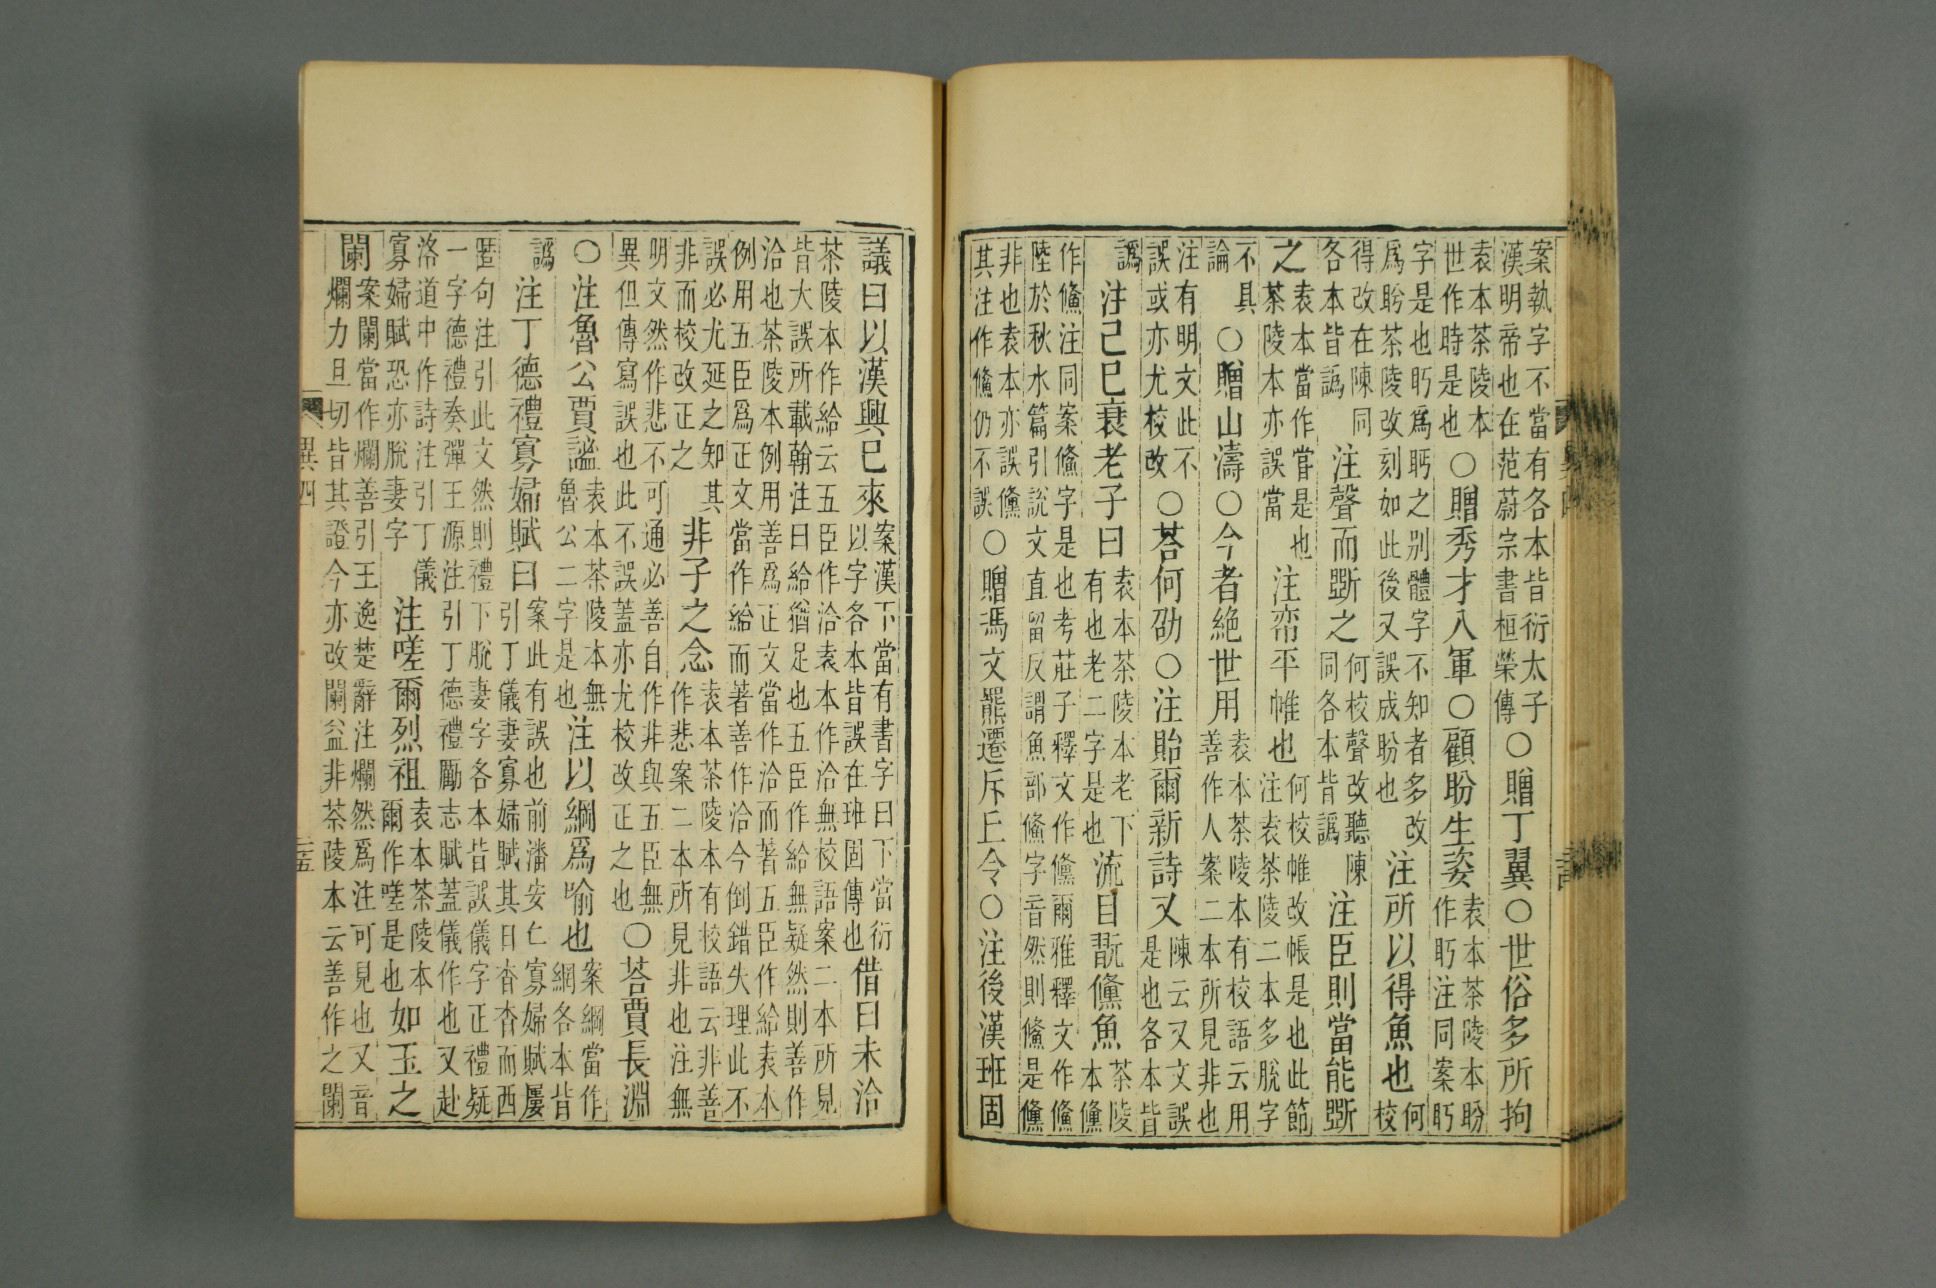 案執字不當有各本皆衍太子漢明帝也在范蔚宗書桓榮傳○贈丁翼○世俗多所拘
袁本茶陵本世作時是也○贈秀才入軍○顧盼生姿袁本茶陵本盼作眄注同案眄
字是也眄爲眄之別體字不知者多改爲盻茶陵改刻如此後又誤成盼也注所以得魚也何校
得改在陳同各本皆譌注聲而斲之何校聲改聽陳同各本皆譌注臣則當能斲
之袁本當作嘗是也茶陵本亦誤當注帟平帷也何校帷改帳是也此節注袁茶陵二本多脫字
不具論○贈山濤○今者絕世用袁本茶陵本有校語云用善作人案二本所見非也
注有明文此不誤或亦尤校改○荅何劭○注貽爾新詩又陳云又文誤是也各本皆
譌注己巳衰老子曰袁本茶陵本老下有也老二字是也流目翫儵魚茶陵本儵
作鯈注同案鯈字是也考莊子釋文作儵爾雅釋文作鯈陸於秋水篇引說文直留反謂魚部鯈字音然則鯈是儵
非也袁本亦誤儵其注作鯈仍不誤○贈馮文羆遷斥丘令○注後漢班固
議曰以漢興已來案漢下當有書字曰下當衍以字各本皆誤在班固傳也借曰未洽
茶陵本作給云五臣作洽袁本作洽無校語案二本所見皆大誤所載翰注曰給猶足也五臣作給無疑然則善作
洽也茶陵本例用善爲正文當作洽而著五臣作給袁本例用五臣爲正文當作給而著善作洽今倒錯失理此不
誤必尤延之知其非而校改正之非子之念袁本茶陵本有校語云非善作悲案二本所見非也注無
明文然作悲不可通必善自作非與五臣無異但傳寫誤也此不誤蓋亦尤校改正之也○荅賈長淵
○注魯公賈謐袁本茶陵本無魯公二字是也注以綱爲喻也案綱當作網各本皆
譌注丁德禮寡婦賦曰案此有誤也前潘安仁寡婦賦屢引丁儀妻寡婦賦其日杳杳而西
匿句注引此文然則禮下脫妻字各本皆誤儀字正禮疑一字德禮奏彈王源注引丁德禮勵志賦蓋儀作也又赴
洛道中作詩注引丁儀寡婦賦恐亦脫妻字注嗟爾烈祖袁本茶陵本爾作嗟是也如玉之
闌案闌當作爛善引王逸楚辭注爛然爲注可見也又音爛力旦切皆其證今亦改闌益非茶陵本云善作之闌
異四